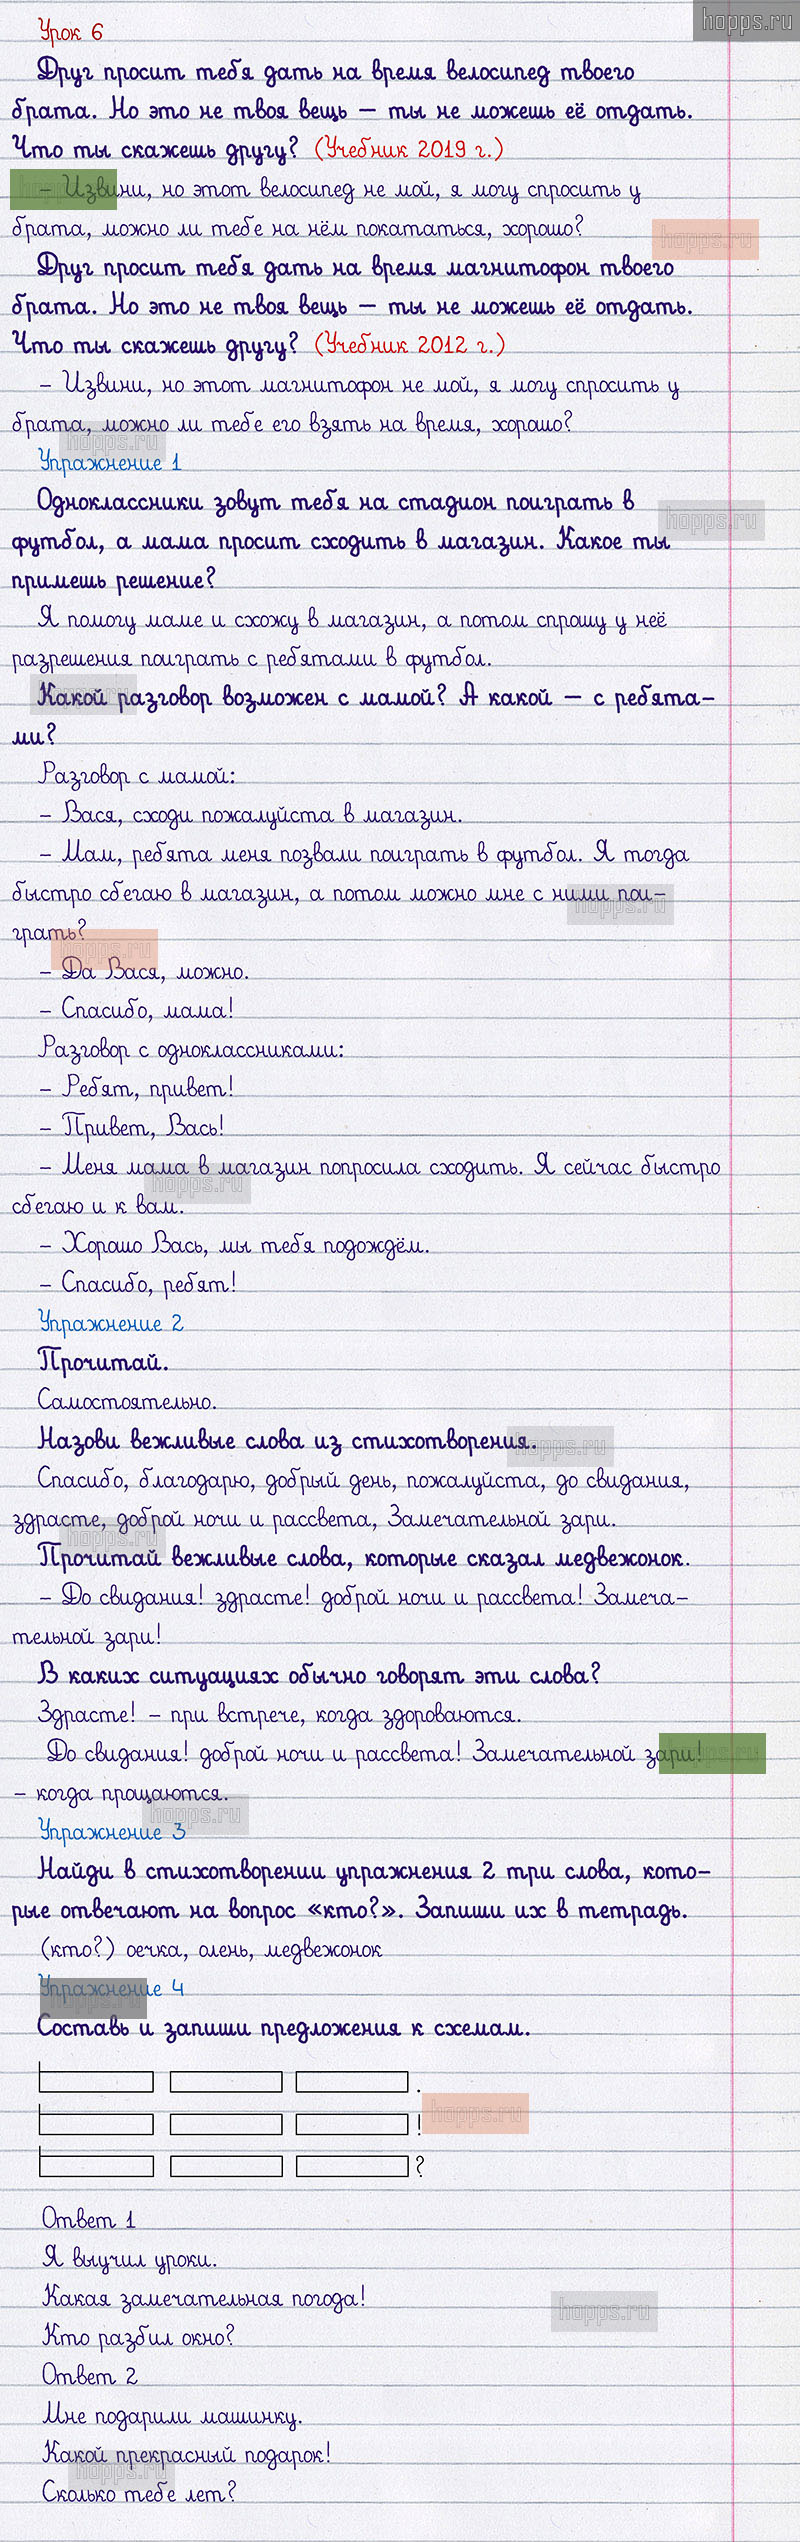 hopps.ru
Урок 6
Друг просит тебя дать на время велосипед твоего
брата. Но это не твоя вещь – ты не можешь её отдать.
Что ты скажешь другу? (Учебник 2019 г.)
– Извини, но этот велосипед не мой, я могу спросить у
брата, можно ли тебе на нём покататься, хорошо?
hopps.ru
Друг просит тебя дать на время магнитофон твоего
брата. Но это не твоя вещь – ты не можешь её отдать.
Что ты скажешь другу? (Учебник 2012 г.)
– Извини, но этот магнитофон не мой, я могу спросить у
брата, можно ли тебе его взять на время, хорошо?
hopps.ru
Упражнение 1
Одноклассники зовут тебя на стадион поиграть в
hopps.ru
футбол, а мама просит сходить в магазин. Какое ты
примешь решение?
Я помогу маме и схожу в магазин, а потом спрошу у неё
разрешения поиграть с ребятами в футбол.
Какой разговор возможен с мамой? А какой – с ребята-
ми?
Разговор с мамой:
– Вася, сходи пожалуйста в магазин.
– Мам, ребята меня позвали поиграть в футбол. Я тогда
быстро сбегаю в магазин, а потом можно мне с ними пои-
hopps.ru
грать?
hopps.ru
– Да Вася, можно.
– Спасибо, мама!
Разговор с одноклассниками:
– Ребят, привет!
– Привет, Вась!
– Меня мама в магазин попросила сходить. Я сейчас быстро
hopps.ru
сбегаю и к вам.
– Хорошо Вась, мы тебя подождём.
– Спасибо, ребят!
Упражнение 2
Прочитай.
Самостоятельно.
Назови вежливые слова из стихотворения.
hopps.ru
Спасибо, благодарю, добрый день, пожалуйста, до свидания,
здрасте, доброй ночи и рассвета, Замечательной зари.
hopps.ru
Прочитай вежливые слова, которые сказал медвежонок.
– До свидания! здрасте! доброй ночи и рассвета! Замеча-
тельной зари!
В каких ситуациях обычно говорят эти слова?
Здрасте! – при встрече, когда здороваются.
До свидания! доброй ночи и рассвета! Замечательной зари!
hopps.ru
– когда прощаются.
hopps.ru
Упражнение 3
Найди в стихотворении упражнения 2 три слова, кото-
рые отвечают на вопрос «кто?». Запиши их в тетрадь.
(кто?) оечка, олень, медвежонок
Упражнение 4
hopps.ru
Составь и запиши предложения к схемам.
.
!
hopps.ru
?
Ответ 1
Я выучил уроки.
Какая замечательная погода!
hopps.ru
Кто разбил окно?
Ответ 2
Мне подарили машинку.
Какой прекрасный подарок!
hopps.ru
Сколько тебе лет?